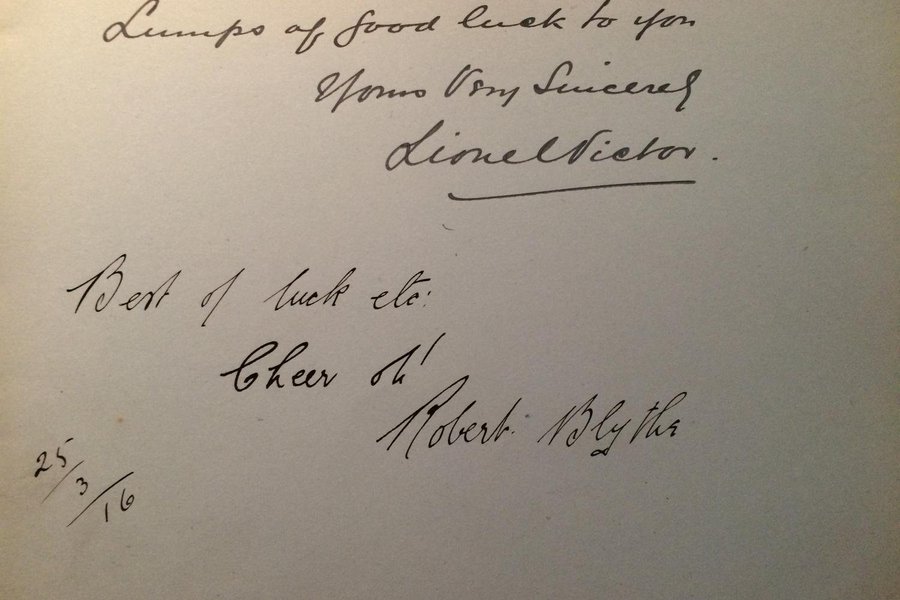 Lumps of good luck to you
Yours Very Sincerely
Lionel Victor.
Best of luck etc:
Cheer oh!
Robert Blythe
25/3/16